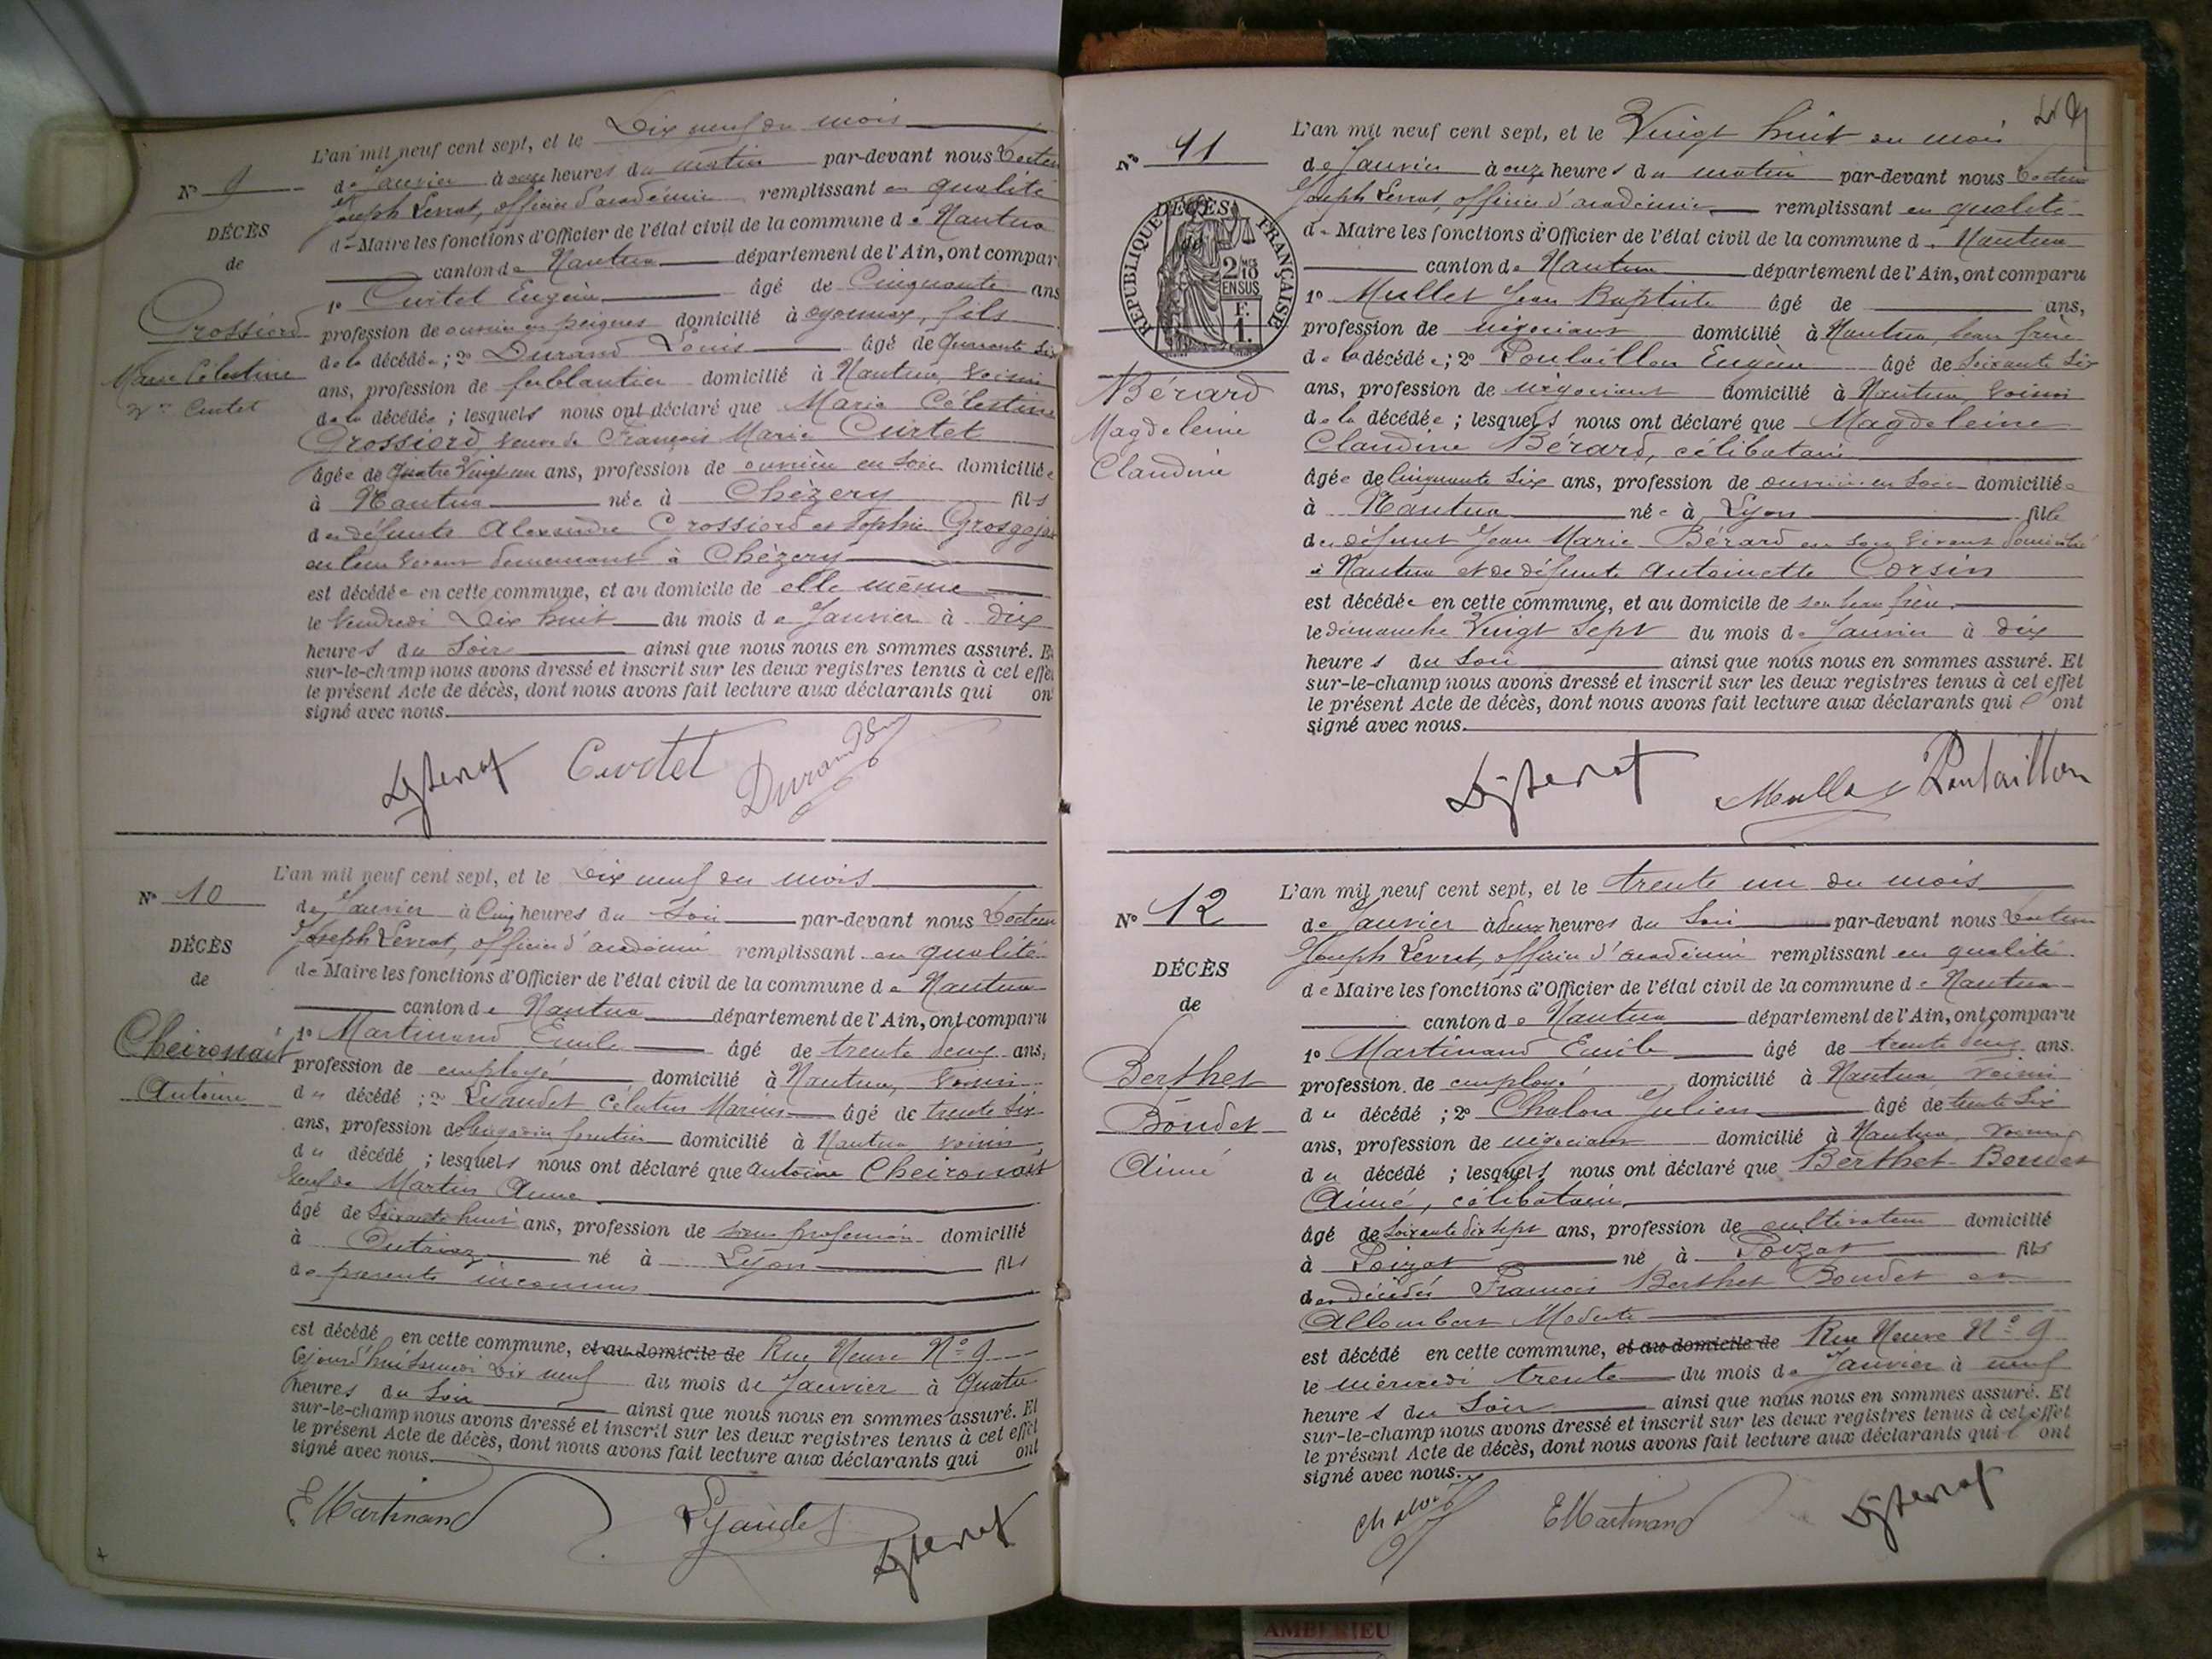 L'an mil neuf cent sept, et le Dix neuf du mois
de Janvier à onze heures du matin par-devant nous Docteur
Joseph Levrat, officier d'académie remplissant en qualité
de Maire les fonctions d'Officier de l'état civil de la commune de Nantua
canton de Nantua département de l'Ain, ont compar
1º Curtet Eugène âgé de Cinquante ans
profession de ouvrier en peignes domicilié à Oyonnax, fils
de la décédée ; 2º Durand Louis âgé de Quarante six
ans, profession de ferblantier domicilié à Nantua, voisin
de la décédée ; lesquels nous ont déclaré que Marie Célestine
Grossiord, veuve de François Marie Curtet
âgée de Quatre Vingt un ans, profession de ouvrière en soie domiciliée
à Nantua née à Chèzery fils
des défunts Alexandre Grossiord et Sophie Grosgojat
en leur vivant demeurant à Chèzery
est décédée en cette commune, et au domicile de elle même
le Vendredi Dix huit du mois de Janvier à dix
heures du Soir ainsi que nous nous en sommes assuré. E
sur-le-champ nous avons dressé et inscrit sur les deux registres tenus à cet effet
le présent Acte de décès, dont nous avons fait lecture aux déclarants qui ont
signé avec nous.
Nº 9
DÉCÈS
de
Grossiord
Marie Célestine
Vve Curtet
Curtet
Durand
L'an mil neuf cent sept, et le Dix neuf du mois
de Janvier à Cinq heures du Soir par-devant nous Docteur
Joseph Levrat, officier d'académie remplissant en qualité
de Maire les fonctions d'Officier de l'état civil de la commune de Nantua
canton de Nantua département de l'Ain, ont comparu
1º Martinand Emile âgé de trente deux ans,
profession de employé domicilié à Nantua, voisin
du décédé ; 2º Célestin Marius âgé de trente six
ans, profession de domicilié à Nantua voisin
du décédé ; lesquels nous ont déclaré que Antoine Cheironait
veuf de Martin Anne
âgé de Soixante huit ans, profession de sans profession domicilié
à Outriaz né à Lyon fils
de parents inconnus
est décédé en cette commune, et au domicile de Rue Neuve Nº 9
Cejourd'hui Samedi Dix neuf du mois de Janvier à Quatre
heures du Soir ainsi que nous nous en sommes assuré. Et
sur-le-champ nous avons dressé et inscrit sur les deux registres tenus à cet effet
le présent Acte de décès, dont nous avons fait lecture aux déclarants qui ont
signé avec nous.
Nº 10
DÉCÈS
de
Cheironait
Antoine
EMartinand
L'an mil neuf cent sept, et le Vingt huit du mois
de Janvier à onze heures du matin par-devant nous Docteur
Joseph Levrat, officier d'académie remplissant en qualité
de Maire les fonctions d'Officier de l'état civil de la commune de Nantua
canton de Nantua département de l'Ain, ont comparu
1º Mullet Jean Baptiste âgé de ans,
profession de négociant domicilié à Nantua, beau frère
de la décédée ; 2º Poulaillon Eugène âgé de Soixante six
ans, profession de négociant domicilié à Nantua, voisin
de la décédée ; lesquels nous ont déclaré que Magdeleine
Claudine Bérard, célibataire
âgée de Cinquante Six ans, profession de ouvrière en soie domiciliée
à Nantua née à Lyon fille
du défunt Jean Marie Bérard en son vivant domicilié
à Nantua et de défunte Antoinette Corsin
est décédée en cette commune, et au domicile de son beau frère
le dimanche Vingt sept du mois de Janvier à dix
heures du Soir ainsi que nous nous en sommes assuré. Et
sur-le-champ nous avons dressé et inscrit sur les deux registres tenus à cet effet
le présent Acte de décès, dont nous avons fait lecture aux déclarants qui ont
signé avec nous.
Nº 11
DÉCÈS
de
RÉPUBLIQUE FRANÇAISE
2/10
EN SUS
F.
1.
Bérard
Magdeleine
Claudine
Mullet Poulaillon
L'an mil neuf cent sept, et le trente un du mois
de Janvier à deux heures du Soir par-devant nous Docteur
Joseph Levrat, officier d'académie remplissant en qualité
de Maire les fonctions d'Officier de l'état civil de la commune de Nantua
canton de Nantua département de l'Ain, ont comparu
1º Martinand Emile âgé de trente deux ans.
profession de employé domicilié à Nantua voisin
du décédé ; 2º Chalon Julien âgé de trente Six
ans, profession de négociant domicilié à Nantua, voisin
du décédé ; lesquels nous ont déclaré que Berthet-Boudet
Aimé, célibataire
âgé de Soixante dix sept ans, profession de cultivateur domicilié
à Poizat né à Poizat fils
des décédés François Berthet Boudet et
Allombert Modeste
est décédé en cette commune, et au domicile de Rue Neuve Nº 9
le mercredi trente du mois de Janvier à neuf
heures du Soir ainsi que nous nous en sommes assuré. Et
sur-le-champ nous avons dressé et inscrit sur les deux registres tenus à cet effet
le présent Acte de décès, dont nous avons fait lecture aux déclarants qui ont
signé avec nous.
Nº 12
DÉCÈS
de
Berthet
Boudet
Aimé
Chalon
EMartinand
AMBERIEU